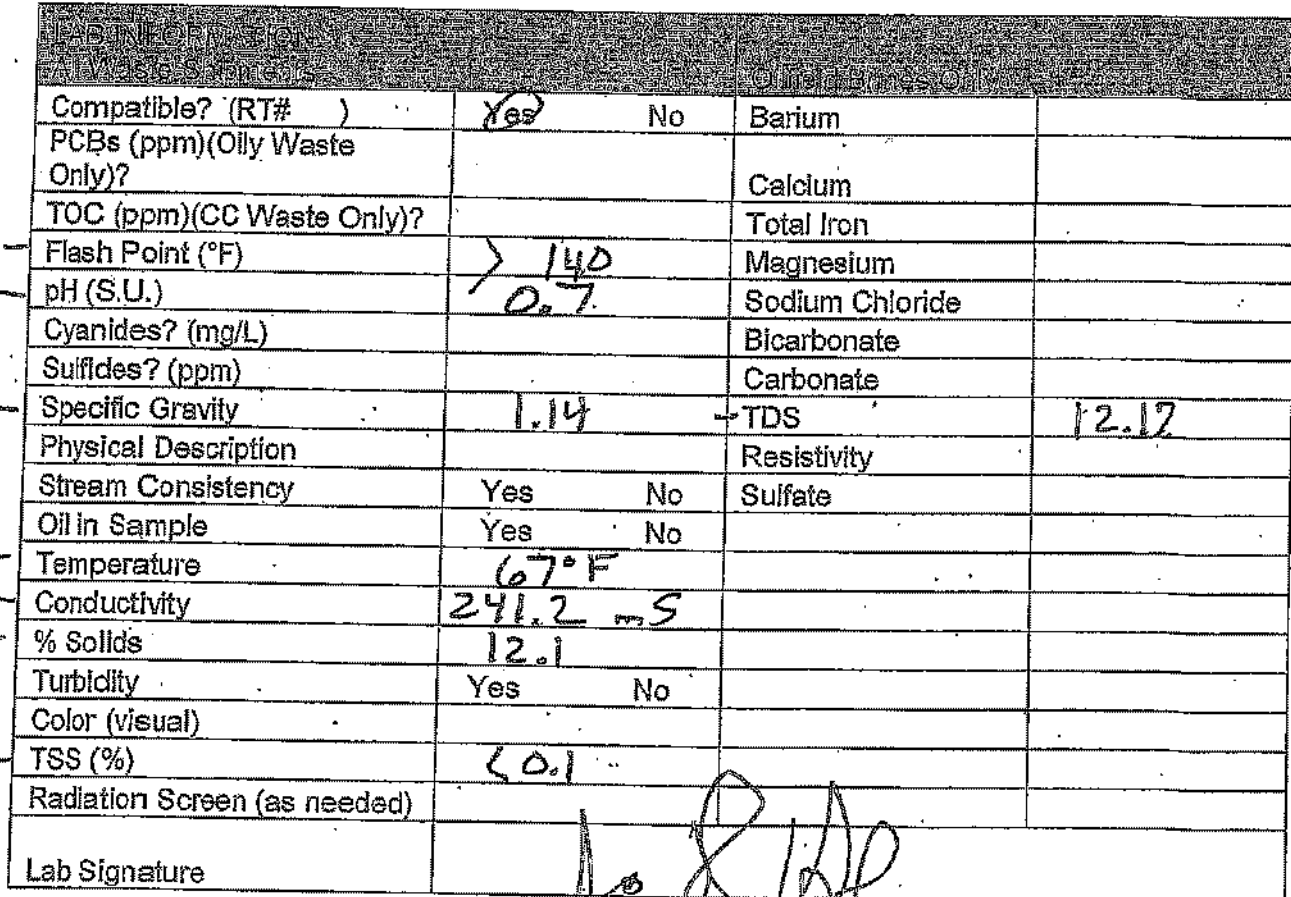 LAB INFORMATION
All Waste Streams Oilfield Brines Only
Compatible? (RT# ) Yes No Barium
PCBs (ppm)(Oily Waste
Only)? Calcium
TOC (ppm)(CC Waste Only)? Total Iron
Flash Point (°F) > 140 Magnesium
pH (S.U.) 0.7 Sodium Chloride
Cyanides? (mg/L) Bicarbonate
Sulfides? (ppm) Carbonate
Specific Gravity 1.14 TDS 12.12
Physical Description Resistivity
Stream Consistency Yes No Sulfate
Oil in Sample Yes No
Temperature 67°F
Conductivity 241.2 mS
% Solids 12.1
Turbidity Yes No
Color (visual)
TSS (%) <0.1
Radiation Screen (as needed)
Lab Signature